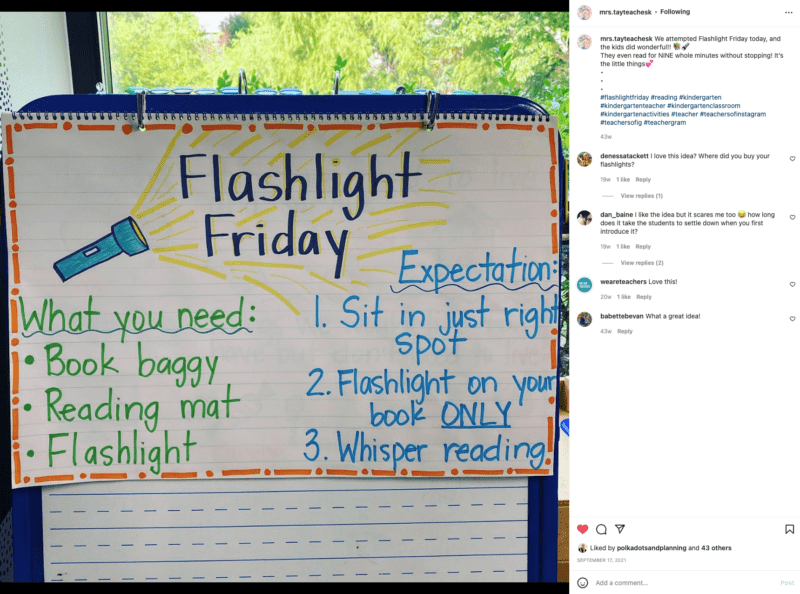 Flashlight
Friday
What you need:
• Book baggy
• Reading mat
• Flashlight
Expectation:
1. Sit in just right
spot
2. Flashlight on your
book ONLY
3. Whisper reading!
mrs.tayteachesk • Following
mrs.tayteachesk We attempted Flashlight Friday today, and
the kids did wonderful!! 
They even read for NINE whole minutes without stopping! It's
the little things💕
.
.
.
#flashlightfriday #reading #kindergarten
#kindergartenteacher #kindergartenclassroom
#kindergartenactivities #teacher #teachersofinstagram
#teachersofig #teachergram
43w
denessatackett I love this idea? Where did you buy your
flashlights?
19w 1 like Reply
View replies (1)
dan_baine I like the idea but it scares me too 😂 how long
does it take the students to settle down when you first
introduce it?
19w 1 like Reply
View replies (2)
weareteachers Love this!
20w 1 like Reply
babettebevan What a great idea!
43w Reply
Liked by polkadotsandplanning and 43 others
SEPTEMBER 17, 2021
Add a comment...
Post